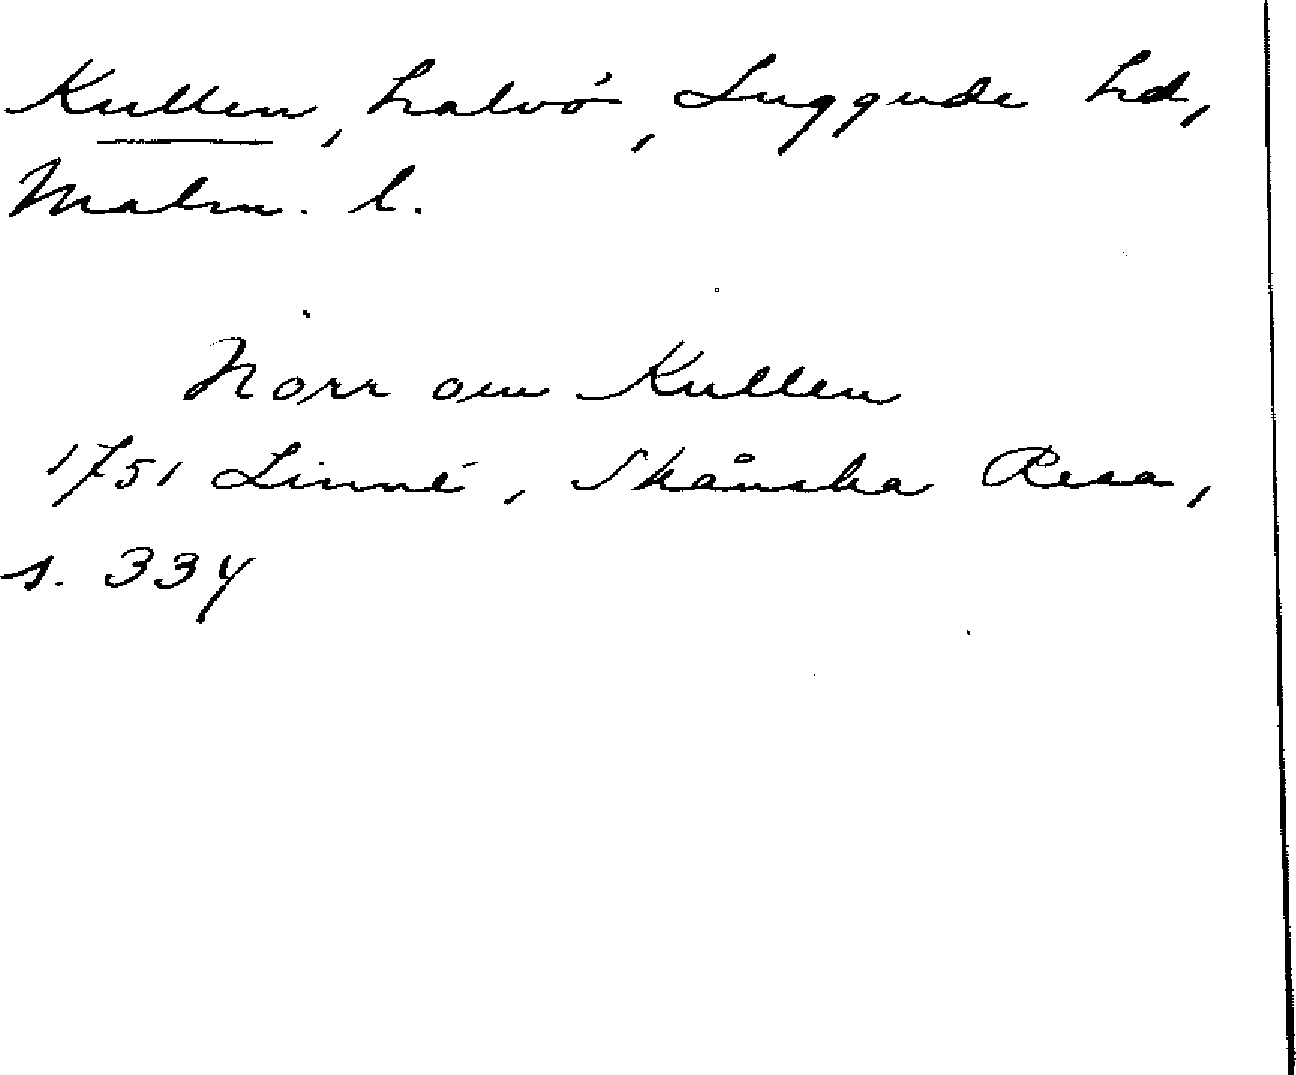 Kullen, halvö, Luggude hd,
Malm. l.
Norr om Kullen
1751 Linné, Skånska Resa,
s. 334